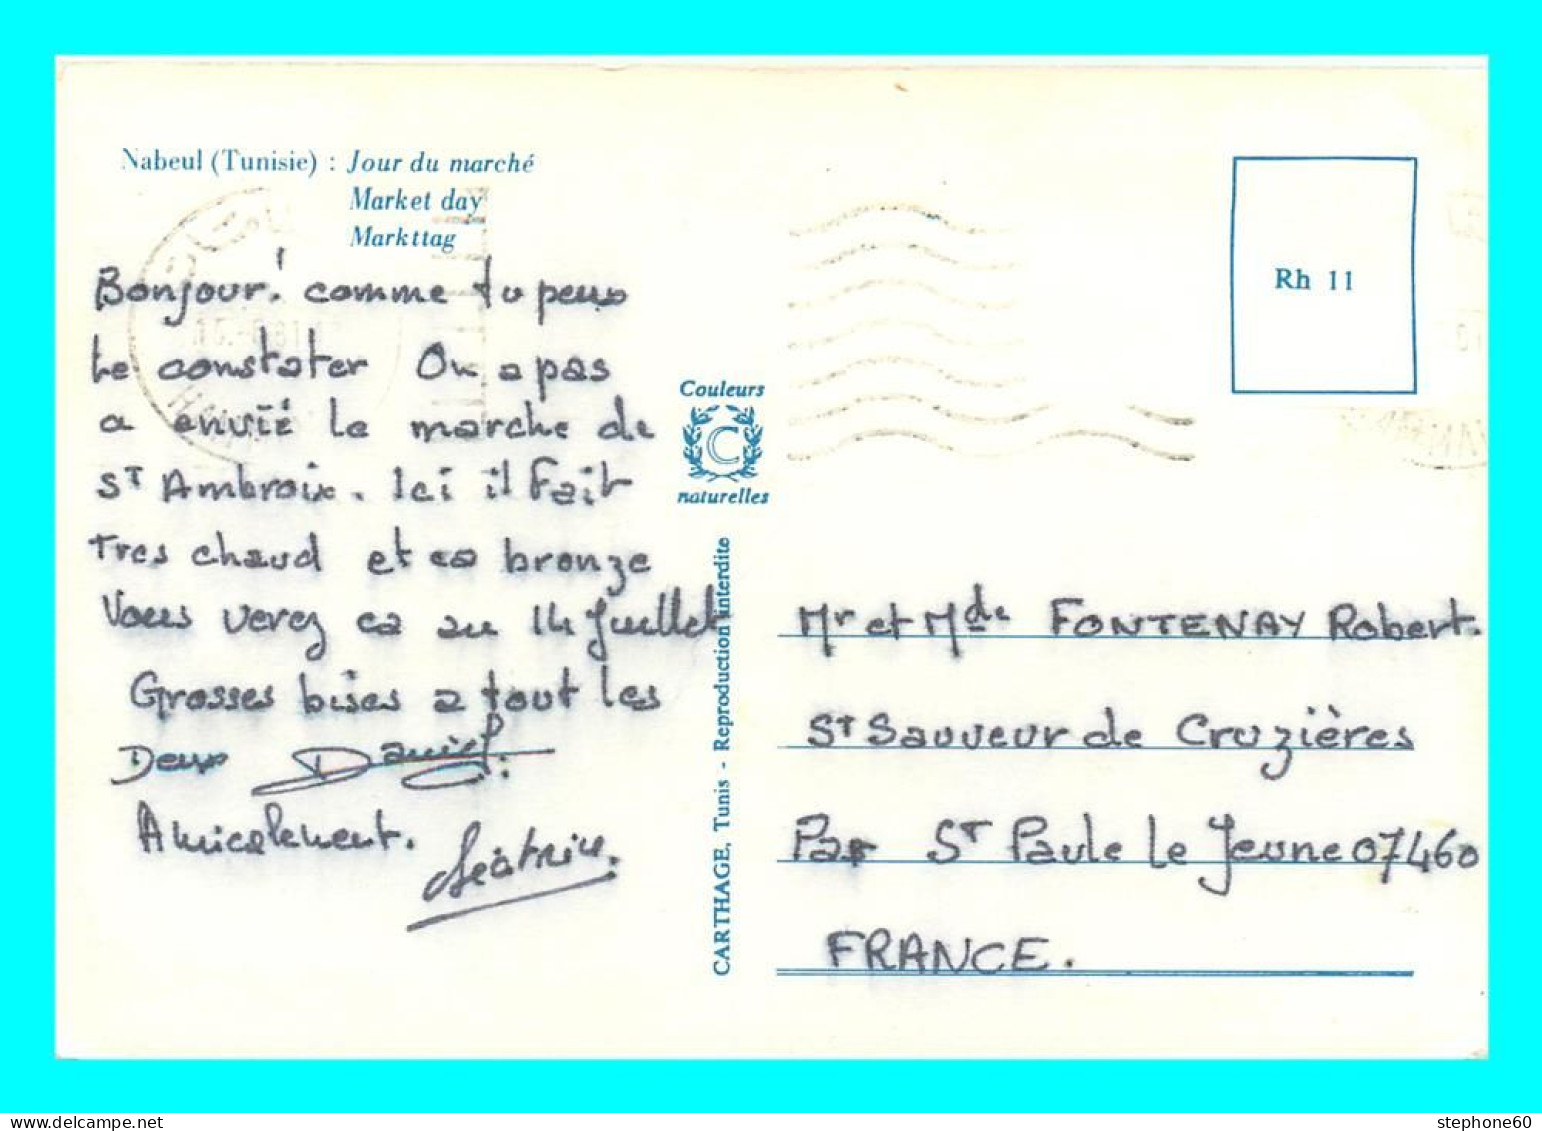 Nabeul (Tunisie) : Jour du marché
Market day
Markttag
Bonjour! comme tu peux
le constater On a pas
a envié le marche de
ST Ambroix. Ici il fait
Tres chaud et ca bronze
Vous verez ca au 14 Juillet
Grosses bises a tout les
Deux Daniel.
Amicalement.
Béatrice.
Couleurs
C
naturelles
CARTHAGE, Tunis - Reproduction interdite
Rh 11
Mr et Mde FONTENAY Robert.
ST Sauveur de Cruzières
Par ST Paule le Jeune 07460
FRANCE.
stephone60